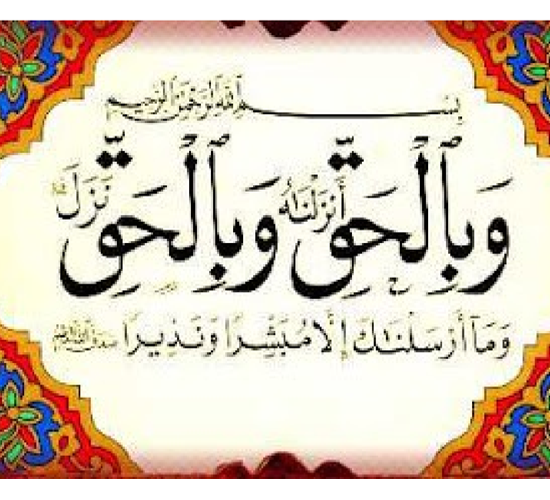 بِسْمِ اللهِ الرَّحْمٰنِ الرَّحِيْمِ
وَبِالْحَقِّ أَنْزَلْنَاهُ وَبِالْحَقِّ نَزَلَ
وَمَا أَرْسَلْنَاكَ إِلَّا مُبَشِّرًا وَنَذِيرًا صدق الله العظيم